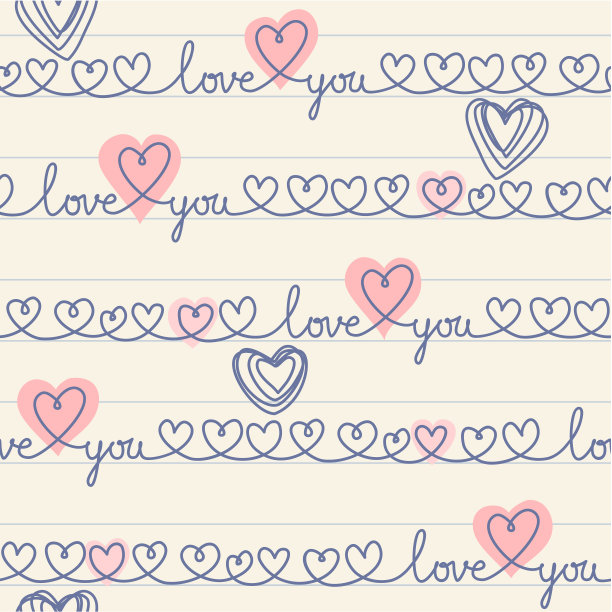 love you
love you
love you
ve you lo
love you